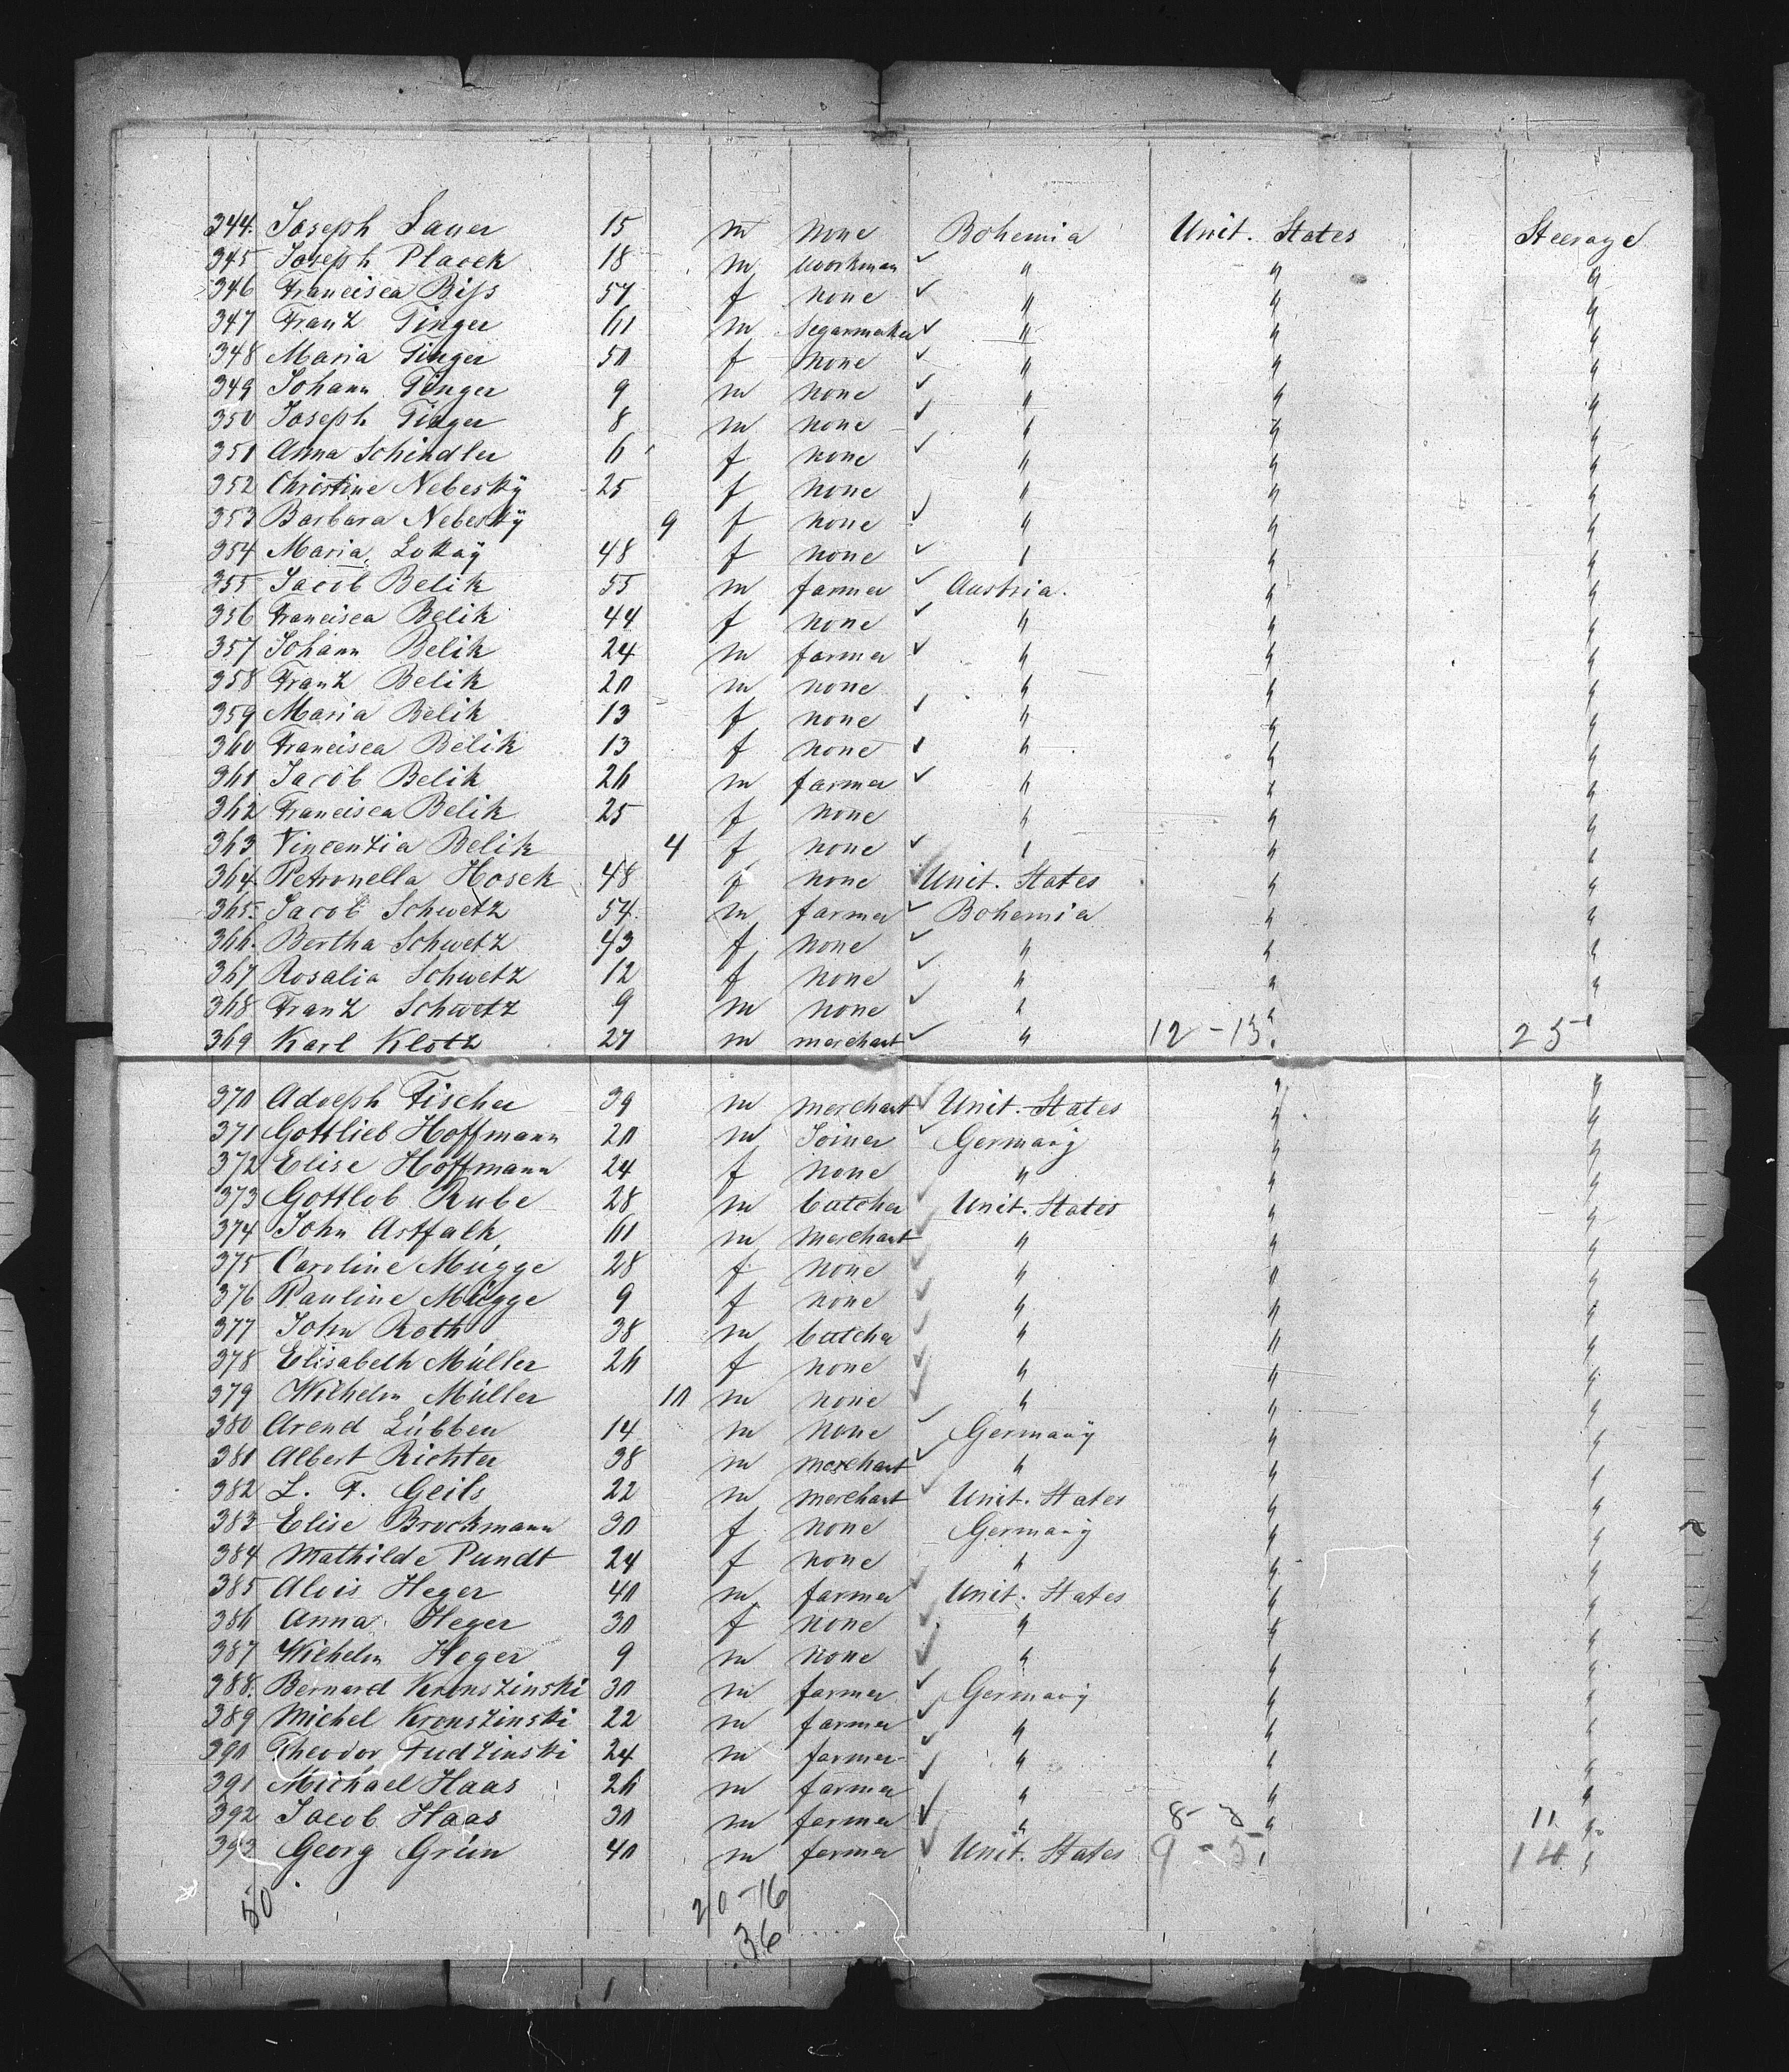 344. Joseph Sauer 15 m none Bohemia Unit. States Steerage
345 Joseph Placek 18 m workman ✓ " " "
346 Francisca Biss 57 f none ✓ " " "
347 Franz Tinger 61 m Segarmaker ✓ " " "
348 Maria Tinger 50 f none ✓ " " "
349 Johann Tinger 9 m none ✓ " " "
350 Joseph Tinger 8 m none ✓ " " "
351 Anna Schindler 6 f none ✓ " " "
352 Christine Nebeskÿ 25 f none " " "
353 Barbara Nebeskÿ 9 f none ✓ " " "
354 Maria Lokaÿ 48 f none ✓ " " "
355 Jacob Belik 55 m farmer ✓ Austria. " "
356 Francisca Belik 44 f none ✓ " " "
357 Johann Belik 24 m farmer ✓ " " "
358 Franz Belik 20 m none " " "
359 Maria Belik 13 f none ✓ " " "
360 Francisca Belik 13 f none ✓ " " "
361 Jacob Belik 26 m farmer ✓ " " "
362 Francisca Belik 25 f none " " "
363 Vincenzia Belik 4 f none ✓ " " "
364. Petronella Hosek 48 f none ✓ Unit. States " "
365. Jacob Schwetz 54 m farmer ✓ Bohemia " "
366. Bertha Schwetz 43 f none ✓ " " "
367 Rosalia Schwetz 12 f none ✓ " " "
368 Franz Schwetz 9 m none ✓ " " "
369 Karl Klotz 27 m merchant ✓ " 12-13 " 25 "
370 Adolph Fischer 39 m merchant ✓ Unit. States " "
371 Gottlieb Hoffmann 20 m Joiner ✓ Germanÿ " "
372 Elise Hoffmann 24 f none " " "
373 Gottlob Rube 28 m butcher ✓ Unit. States " "
374 John Astfalk 61 m merchant ✓ " " "
375 Caroline Mügge 28 f none ✓ " " "
376 Pauline Mügge 9 f none ✓ " " "
377 John Roth 38 m butcher ✓ " " "
378 Elisabeth Müller 26 f none ✓ " " "
379 Wilhelm Müller 10 m none ✓ " " "
380 Arend Lübben 14 m none ✓ Germanÿ " "
381 Albert Richter 38 m merchant ✓ " " "
382 L. F. Geils 22 m merchant ✓ Unit. States " "
383 Elise Brockmann 30 f none Germanÿ " "
384 Mathilde Pundt 24 f none " " "
385 Alois Heger 40 m farmer ✓ Unit. States " "
386 Anna Heger 30 f none ✓ " " "
387 Wilhelm Heger 9 m none ✓ " " "
388. Bernard Kronszinski 30 m farmer ✓ Germanÿ " "
389 Michel Kronszinski 22 m farmer ✓ " " "
390 Theodor Fudzinski 24 m farmer ✓ " " "
391 Michael Haas 26 m farmer ✓ " " "
392 Jacob Haas 30 m farmer ✓ " 8-3 " 11 "
393 Georg Grün 40 m farmer ✓ Unit. States 9-5 " 14 "
50 20-16
36